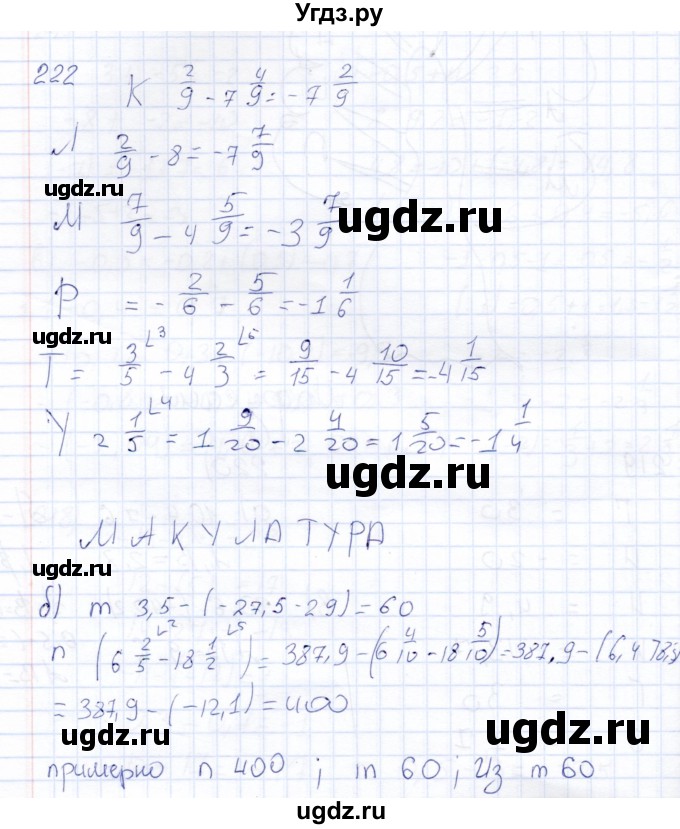 Угдз.ру
222
К 2/9 - 7 4/9 = -7 2/9
Л 2/9 - 8 = -7 7/9
ugdz.ru
М 7/9 - 4 5/9 = -3 7/9
ugdz.ru
Р = - 2/6 - 5/6 = -1 1/6
ugdz.ru
Т = 3/5 ∟3 - 4 2/3 ∟5 = 9/15 - 4 10/15 = -4 1/15
У 2 1/5 ∟4 = 1 9/20 - 2 4/20 = 1 5/20 = -1 1/4
ugdz.ru
МАКУЛАТУРА
ugdz.ru
б) m 3,5 - (-27,5 - 29) = 60
n (6 2/5 ∟2 - 18 1/2 ∟5) = 387,9 - (6 4/10 - 18 5/10) = 387,9 - (6,4
= 387,9 - (-12,1) = 400
ugdz.ru
ugdz.ru
примерно n 400 ; m 60 ; Из m 60
ugdz.ru